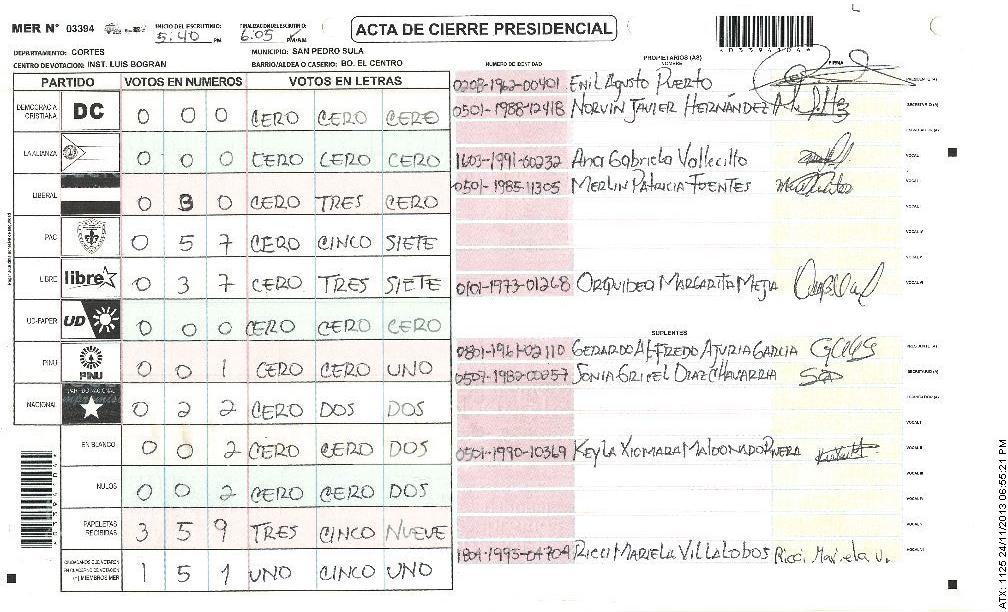 MER N° 03394 INICIO DEL ESCRUTINIO: 5:40 PM FINALIZACION DEL ESCRUTINIO: 6:05 PM/AM ACTA DE CIERRE PRESIDENCIAL
DEPARTAMENTO: CORTES MUNICIPIO: SAN PEDRO SULA
CENTRO DE VOTACION: INST. LUIS BOGRAN BARRIO/ALDEA O CASERIO: BO. EL CENTRO
PARTIDO VOTOS EN NUMEROS VOTOS EN LETRAS
DEMOCRACIA CRISTIANA DC 0 0 0 CERO CERO CERO
LA ALIANZA 0 0 0 CERO CERO CERO
LIBERAL 0 3 0 CERO TRES CERO
PAC 0 5 7 CERO CINCO SIETE
LIBRE libre 0 3 7 CERO TRES SIETE
UD-FAPER UD 0 0 0 CERO CERO CERO
PINU PINU 0 0 1 CERO CERO UNO
NACIONAL 0 2 2 CERO DOS DOS
EN BLANCO 0 0 2 CERO CERO DOS
NULOS 0 0 2 CERO CERO DOS
PAPELETAS RECIBIDAS 3 5 9 TRES CINCO NUEVE
CIUDADANOS QUE VOTARON EN CUADERNO DE VOTACION (+) MIEMBROS MER 1 5 1 UNO CINCO UNO
PROPIETARIOS (AS)
NUMERO DE IDENTIDAD NOMBRE FIRMA
0208-1962-00401 Enil Agusto Puerto PRESIDENTE (A)
0501-1988-12418 NORVIN JAVIER HERNÁNDEZ A SECRETARIO (A)
1603-1991-00232 Ana Gabriela Vallecillo VOCAL I
0501-1985-11305 MERLIN PATRICIA FUENTES
0101-1973-01268 ORQUIDEA MARGARITA MEJIA
SUPLENTES
0801-1961-02110 GERARDO ALFREDO ATURIA GARCIA PRESIDENTE (A)
0507-1982-00257 SONIA GRICEL DIAZ CHAVARRIA SECRETARIO (A)
0501-1990-10369 KEYLA XIOMARA MALDONADO RIVERA
1804-1993-04704 RICCI MARIELA VILLALOBOS Ricci Mariela V.
ATX: 1125 24/11/2013 06:55:21 PM